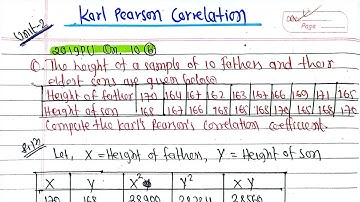 Karl Pearson Correlation
Unit-2
Page
2019PU Qn. 10
Q. The height of a sample of 10 fathers and their
eldest sons are given below
Height of father 170 164 167 162 163 167 166 169 171 165
Height of son 168 167 166 168 165 168 170 165 168 170
Compute the karl's pearson's correlation coefficient.
Let, X = Height of fathers, Y = Height of son
X Y X² Y² XY
170 168 28900 28224 28560